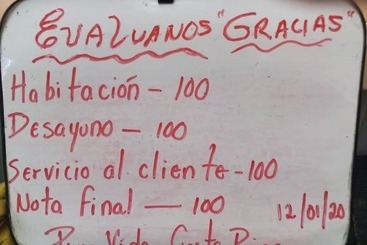 EVALUANOS "GRACIAS"
Habitación - 100
Desayuno - 100
Servicio al cliente - 100
Nota final - 100 12/01/20
Pura Vida Costa Rica